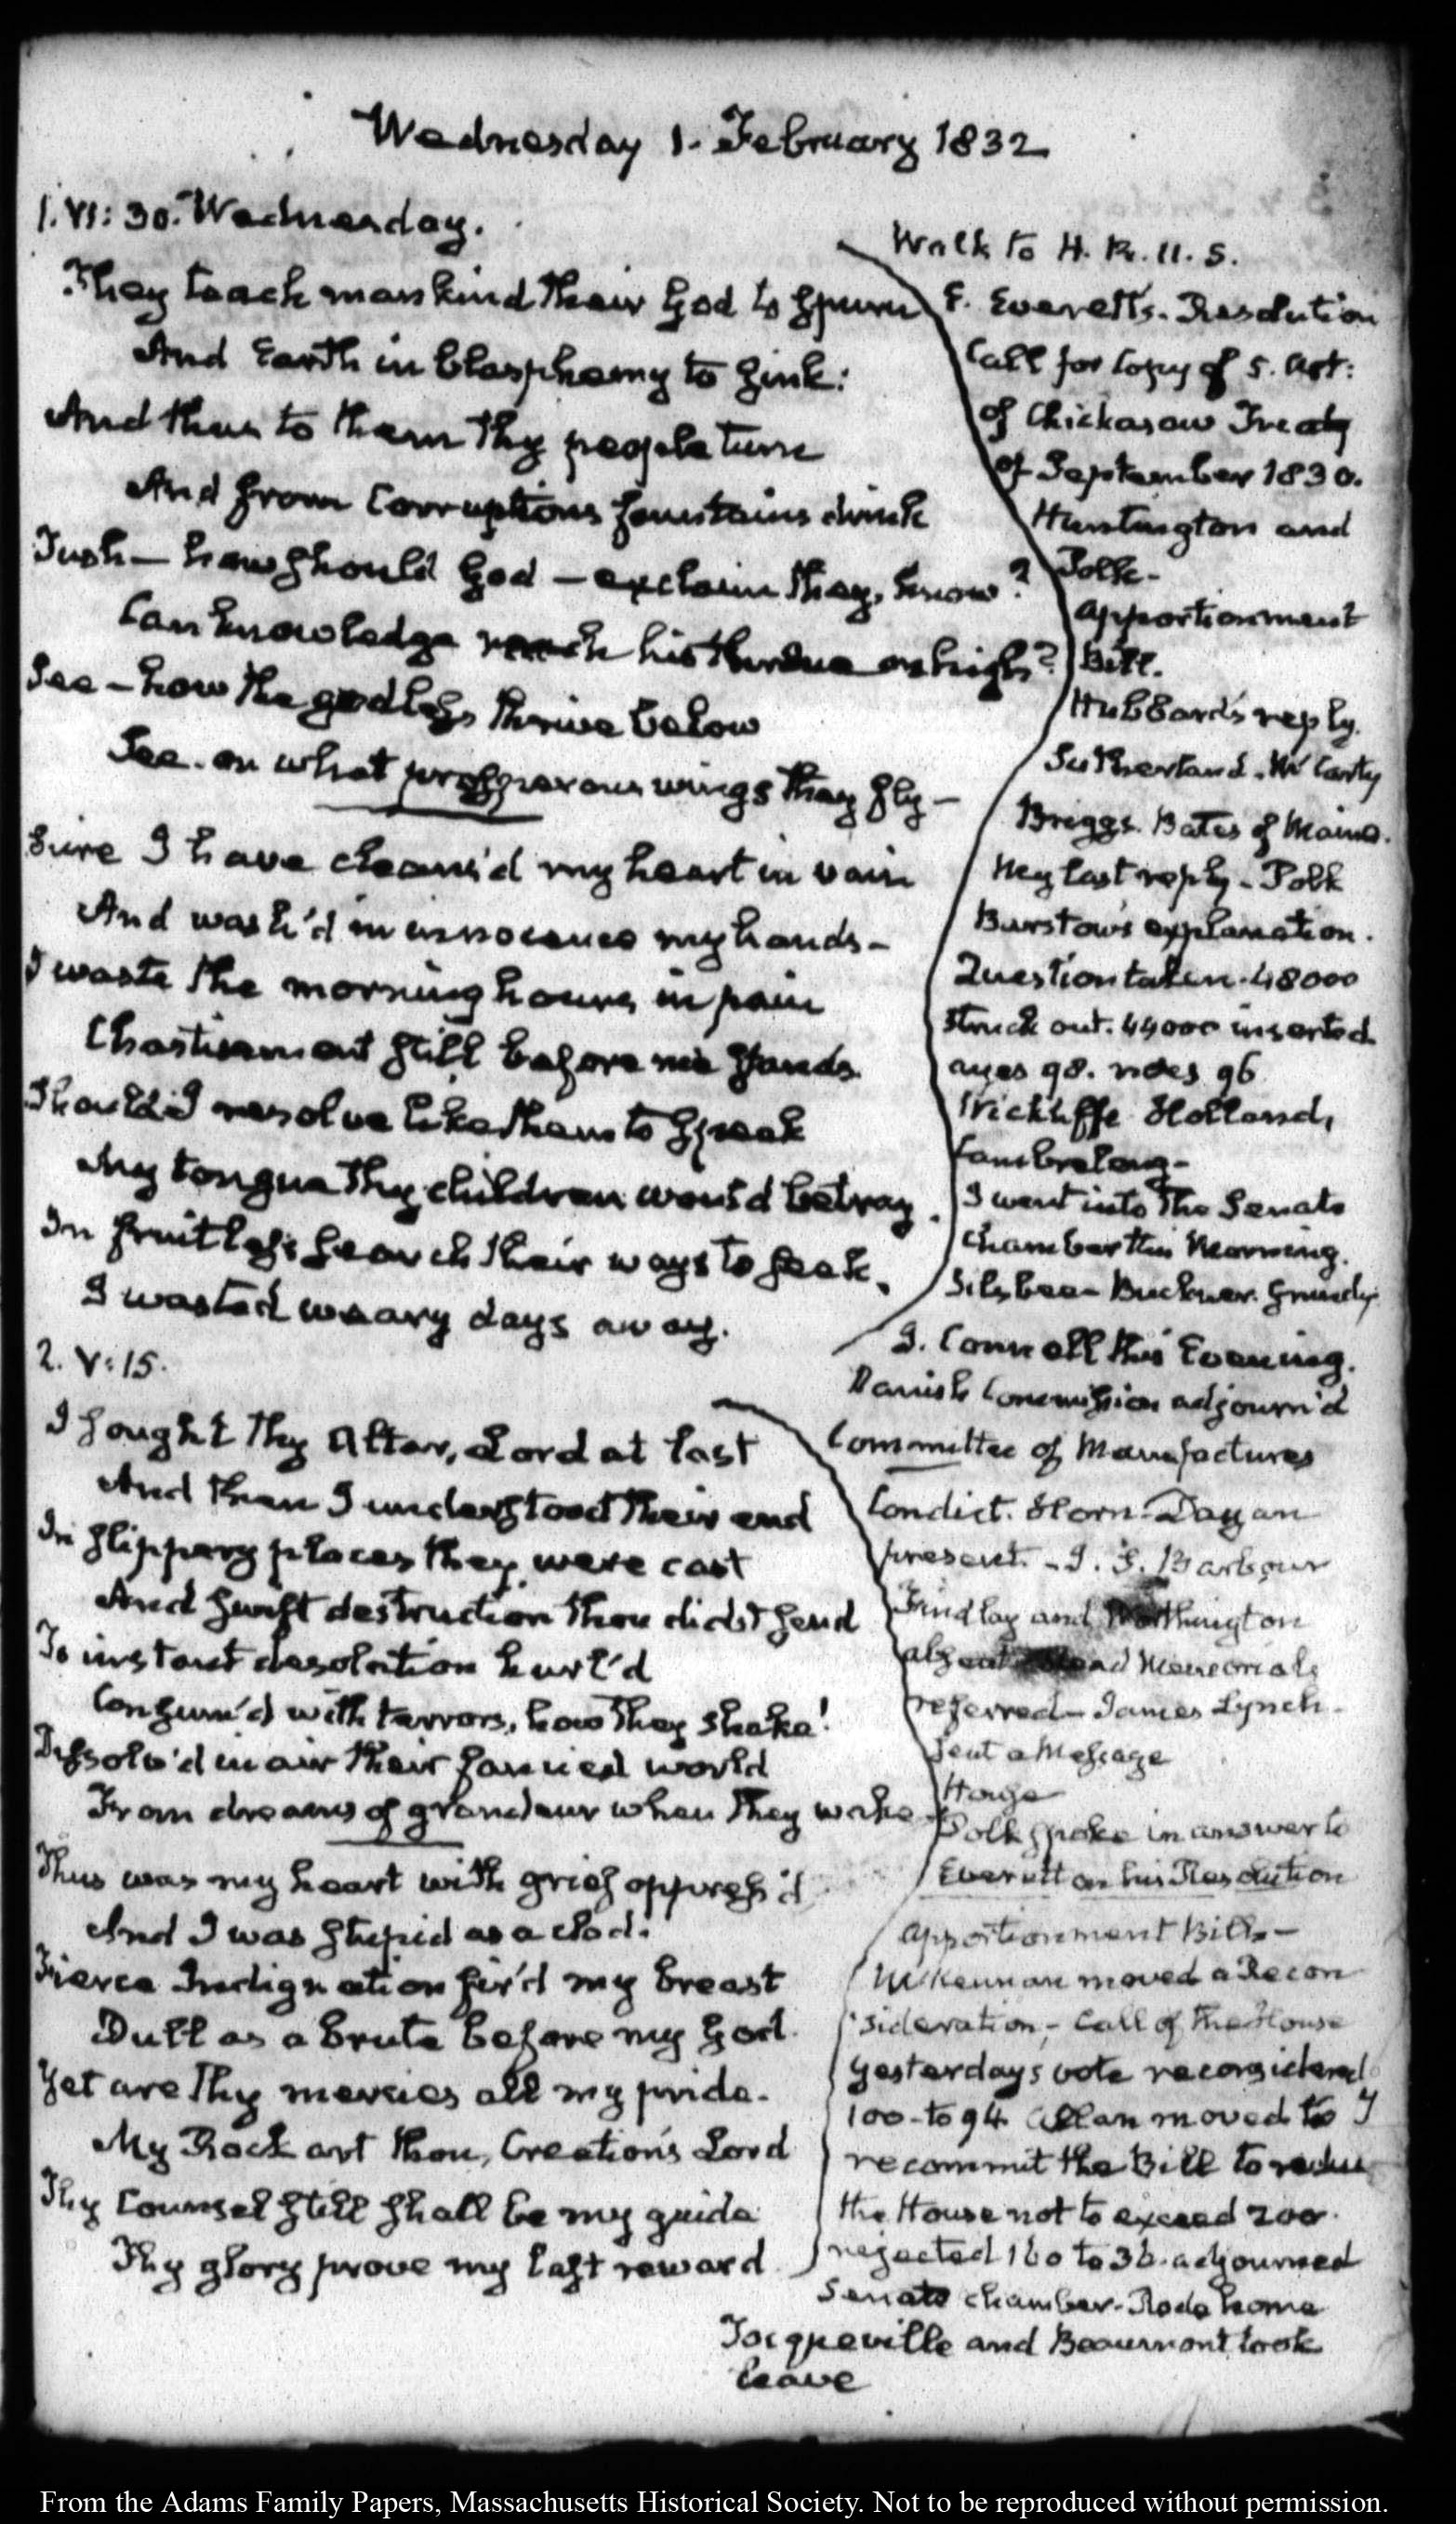 Wednesday 1. February 1832
1. VI: 30. Wednesday.
They teach mankind their God to spurn
And Earth in blasphemy to sink:
And thus to them thy people turn
And from Corruptions fountains drink
Tush — how should God — exclaim they, know?
Can knowledge reach his throne on high?
See — how the godless thrive below
See. on what prosperous wings they fly —
Sure I have cleans'd my heart in vain
And wash'd in innocence my hands —
I waste the morning hours in pain
Chastisement still before me stands.
Should I resolve like them to speak
My tongue thy children would betray.
In fruitless search their ways to seek,
I wasted weary days away.
Walk to H. R. U. S.
E. Everett's. Resolution
Call for Copy of 5. Art:
of Chickasaw Treaty
of September 1830.
Huntington and
Polk —
Apportionment
Bill.
Hubbard's reply.
Sutherland. McCarty
Briggs. Bates of Maine.
My last reply — Polk
Burstow's explanation.
Question taken. 48000
struck out. 44000 inserted
ayes 98. noes 96
Wickliffe Holland,
Cambreleng —
I went into the Senate
chamber this Morning.
Silsbee — Buckner. Grundy
J. Connell this Evening.
Danish Commission adjourn'd
2. V: 15.
I sought thy Altar, Lord at last
And then I understood their end
In slippery places they were cast
And swift destruction thou didst send
To instant desolation hurl'd
Consum'd with terrors, how they shake!
Dissolv'd in air their fancied world
From dreams of grandeur when they wake.
Thus was my heart with grief oppress'd
And I was stupid as a clod.
Fierce Indignation fir'd my breast
Dull as a brute before my God.
Yet are thy mercies all my pride.
My Rock art thou, Creation's Lord
Thy Counsel still shall be my guide
Thy glory prove my last reward
Committee of Manufactures
Condict. Horn — Dayan
present. — J. S. Barbour
Findlay and Worthington
absent Memorials
referred — James Lynch —
sent a Message
House
Polk spoke in answer to
Everett on his Resolution
Apportionment Bill —
McKennan moved a Recon
sideration — Call of the House
Yesterdays vote reconsidered
100 — to 94. Allan moved to
recommit the Bill to
the House not to exceed 200.
rejected 160 to 36. adjourned
Senate chamber — Rode home
Tocqueville and Beaumont took
leave
From the Adams Family Papers, Massachusetts Historical Society. Not to be reproduced without permission.